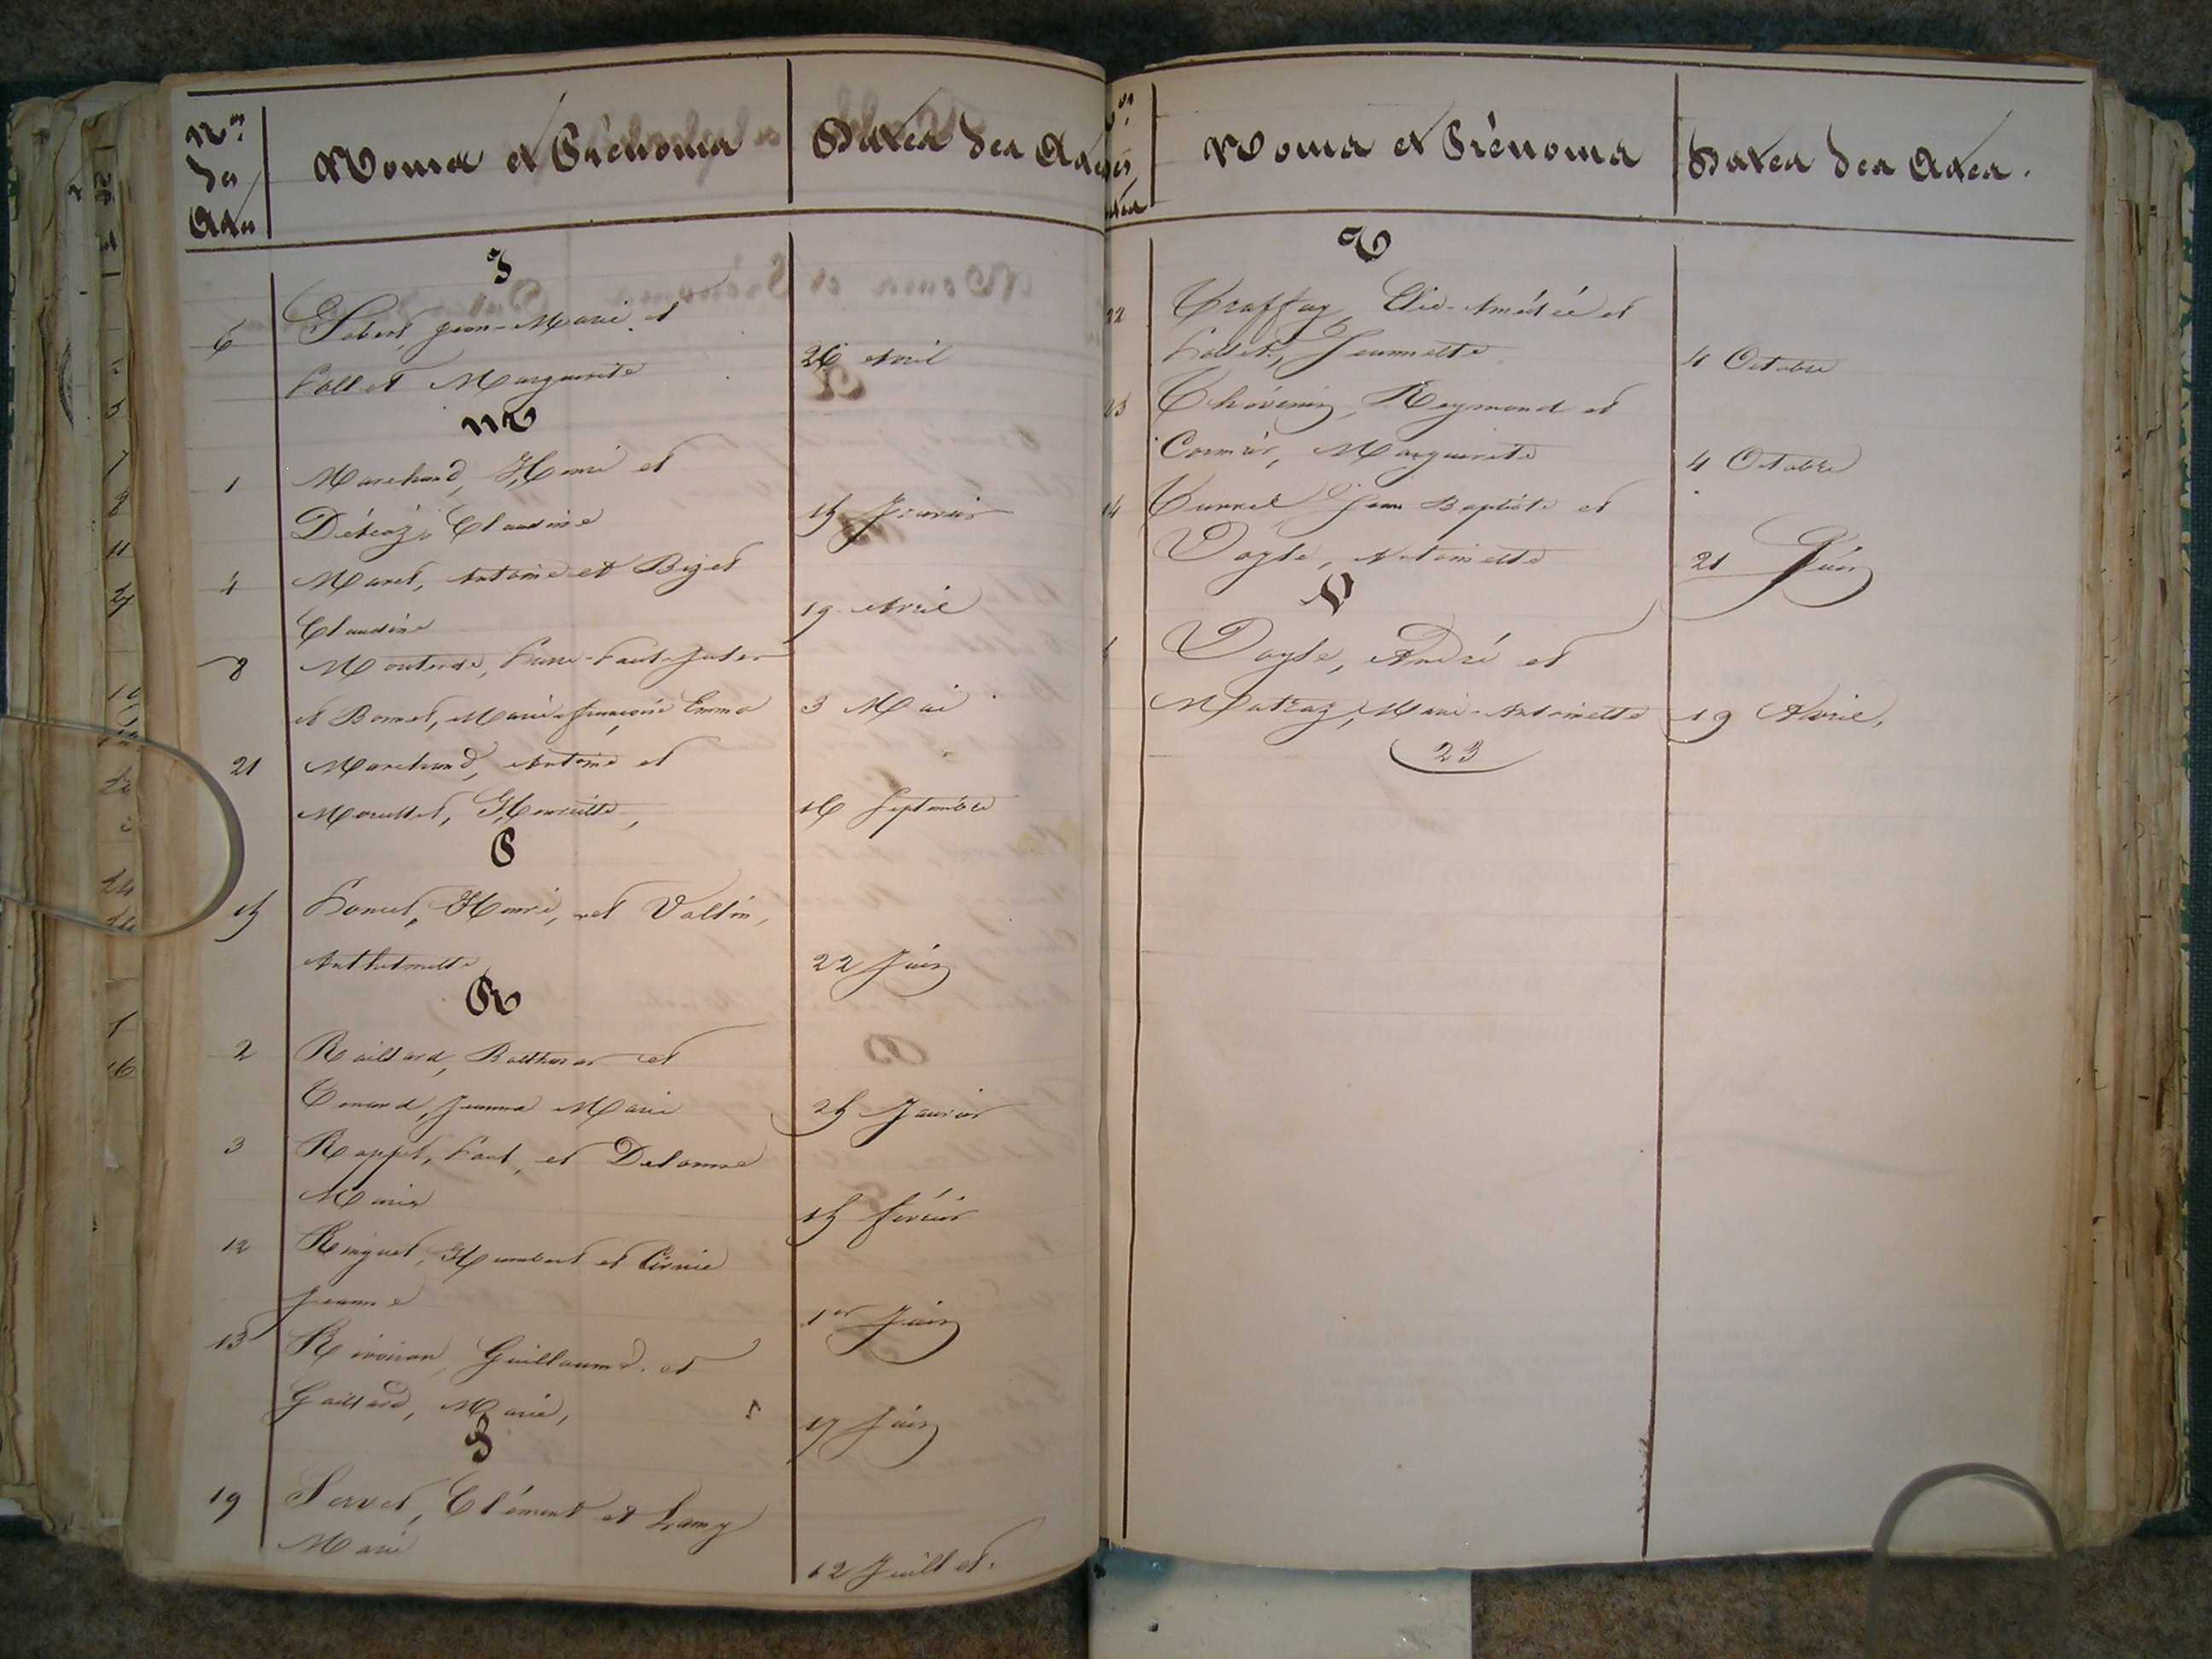 Nos des Actes
Noms et Prénoms
Dates des Actes
J
6 Jobert Jean-Marie et
Collet Marguerite 26 Avril
M
1 Marchand, Henri et
Claudine 15 Janvier
4 Maret, Antoine et Bizet
Claudine 19 Avril
8 Monterde, Paul-Jules
et Bonnet, Marie-Françoise Emma 3 Mai
21 Marchand, Antoine et
Henriette, 16 Septembre
P
15 Henri, et Valtin,
22 Juin
R
2 Raillard, Balthazar et
Jeanne Marie 25 Janvier
3 Rappet, Paul, et Delorme
Maria 15 Février
12 Ringuet, Humbert et
Jeanne 1er Juin
13 Rivoiron, Guillaume et
Gaillard, Marie, 17 Juin
S
19 Servet, Clément et Lamy
Marie 12 Juillet.
Noms et Prénoms
Dates des Actes.
T
22 Traffay, Elie-Amédée et
Jeannette 4 Octobre
23 Thévenin, Reymond et
Cormier, Marguerite 4 Octobre
14 Tunnel Jean Baptiste et
Vayle, Antoinette 21 Juin
V
Vayle, André et
Matray, Marie-Antoinette 19 Avril,
23